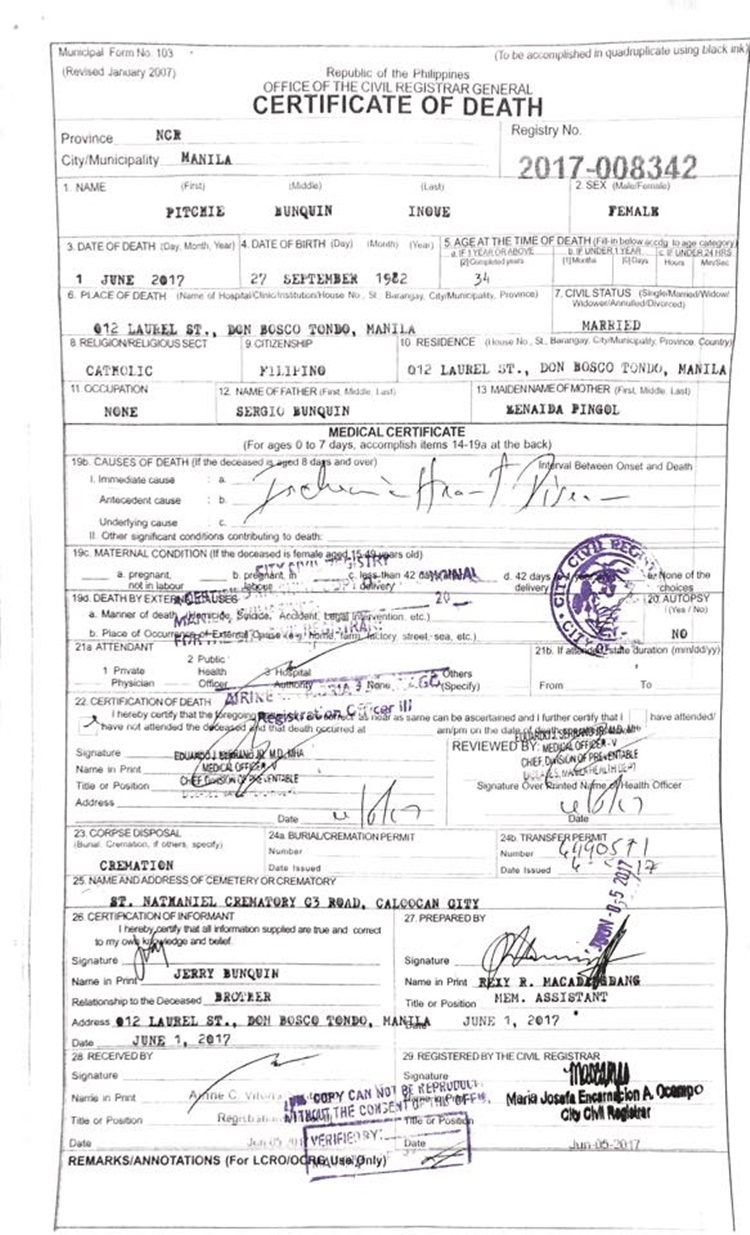 Municipal Form No. 103
(Revised January 2007)
(To be accomplished in quadruplicate using black ink)
Republic of the Philippines
OFFICE OF THE CIVIL REGISTRAR GENERAL
CERTIFICATE OF DEATH
Province NCR
City/Municipality MANILA
Registry No.
2017-008342
1. NAME (First) (Middle) (Last)
PITCHIE BUNQUIN INOUE
2. SEX (Male/Female)
FEMALE
3. DATE OF DEATH (Day, Month, Year)
1 JUNE 2017
4. DATE OF BIRTH (Day) (Month) (Year)
27 SEPTEMBER 1982
5. AGE AT THE TIME OF DEATH (Fill-in below accdg. to age category)
a. IF 1 YEAR OR ABOVE b. IF UNDER 1 YEAR c. IF UNDER 24 HRS
[2] Completed years [1] Months [0] Days Hours Min/Sec
34
6. PLACE OF DEATH (Name of Hospital/Clinic/Institution/House No., St., Barangay, City/Municipality, Province)
012 LAUREL ST., DON BOSCO TONDO, MANILA
7. CIVIL STATUS (Single/Married/Widow/
Widower/Annulled/Divorced)
MARRIED
8 RELIGION/RELIGIOUS SECT
CATHOLIC
9. CITIZENSHIP
FILIPINO
10 RESIDENCE (House No., St., Barangay, City/Municipality, Province, Country)
012 LAUREL ST., DON BOSCO TONDO, MANILA
11. OCCUPATION
NONE
12. NAME OF FATHER (First, Middle, Last)
SERGIO BUNQUIN
13 MAIDEN NAME OF MOTHER (First, Middle, Last)
ZENAIDA PINGOL
MEDICAL CERTIFICATE
(For ages 0 to 7 days, accomplish items 14-19a at the back)
19b. CAUSES OF DEATH (If the deceased is aged 8 days and over)
Interval Between Onset and Death
I. Immediate cause : a.
Ischemic Heart Disease
Antecedent cause : b.
Underlying cause : c.
II. Other significant conditions contributing to death:
19c. MATERNAL CONDITION (If the deceased is female aged 15-49 years old)
a. pregnant, not in labour
b. pregnant, in labour
c. less than 42 days delivery
d. 42 days delivery
e. None of the choices
CITY CIVIL REGISTRY
19d. DEATH BY EXTERNAL CAUSES
a. Manner of death (Homicide, Suicide, Accident, Legal Intervention, etc.)
b. Place of Occurrence of External Cause (e.g. home, farm, factory, street, sea, etc.)
20. AUTOPSY
(Yes / No)
NO
21a ATTENDANT
1 Private Physician
2 Public Health Officer
3 Hospital Authority
None
Others (Specify)
21b. If attended, state duration (mm/dd/yy)
From To
Registration Officer III
22. CERTIFICATION OF DEATH
I hereby certify that the foregoing as near as same can be ascertained and I further certify that I have attended/
have not attended the deceased and that death occurred at am/pm on the date of death
Signature
EDUARDO J. SERRANO JR. M.D., MHA
Name in Print MEDICAL OFFICER - V
Title or Position CHIEF, DIVISION OF PREVENTABLE
Address
Date 6/6/17
REVIEWED BY:
EDUARDO J. SERRANO JR. M.D., MHA
MEDICAL OFFICER - V
CHIEF, DIVISION OF PREVENTABLE
Signature Over Printed Name of Health Officer
6/6/17
Date
23. CORPSE DISPOSAL
(Burial, Cremation, if others, specify)
CREMATION
24a. BURIAL/CREMATION PERMIT
Number
Date Issued
24b. TRANSFER PERMIT
Number
Date Issued
JUN-05 2017
25. NAME AND ADDRESS OF CEMETERY OR CREMATORY
ST. NATHANIEL CREMATORY C3 ROAD, CALOOCAN CITY
26. CERTIFICATION OF INFORMANT
I hereby certify that all information supplied are true and correct
to my own knowledge and belief.
Signature
Name in Print JERRY BUNQUIN
Relationship to the Deceased BROTHER
Address 012 LAUREL ST., DON BOSCO TONDO, MANILA
Date JUNE 1, 2017
27. PREPARED BY
Signature
Name in Print
Title or Position MEM. ASSISTANT
Date JUNE 1, 2017
28 RECEIVED BY
Signature
Name in Print
Title or Position
Date Jun-05-2017
29. REGISTERED BY THE CIVIL REGISTRAR
Signature
Name in Print Maria Josefa Encarnacion A. Ocampo
Title or Position City Civil Registrar
Date Jun-05-2017
COPY CAN NOT BE REPRODUC
WITHOUT THE CONSENT OF THIS OFFICE
VERIFIED BY:
REMARKS/ANNOTATIONS (For LCRO/OCRG Use Only)